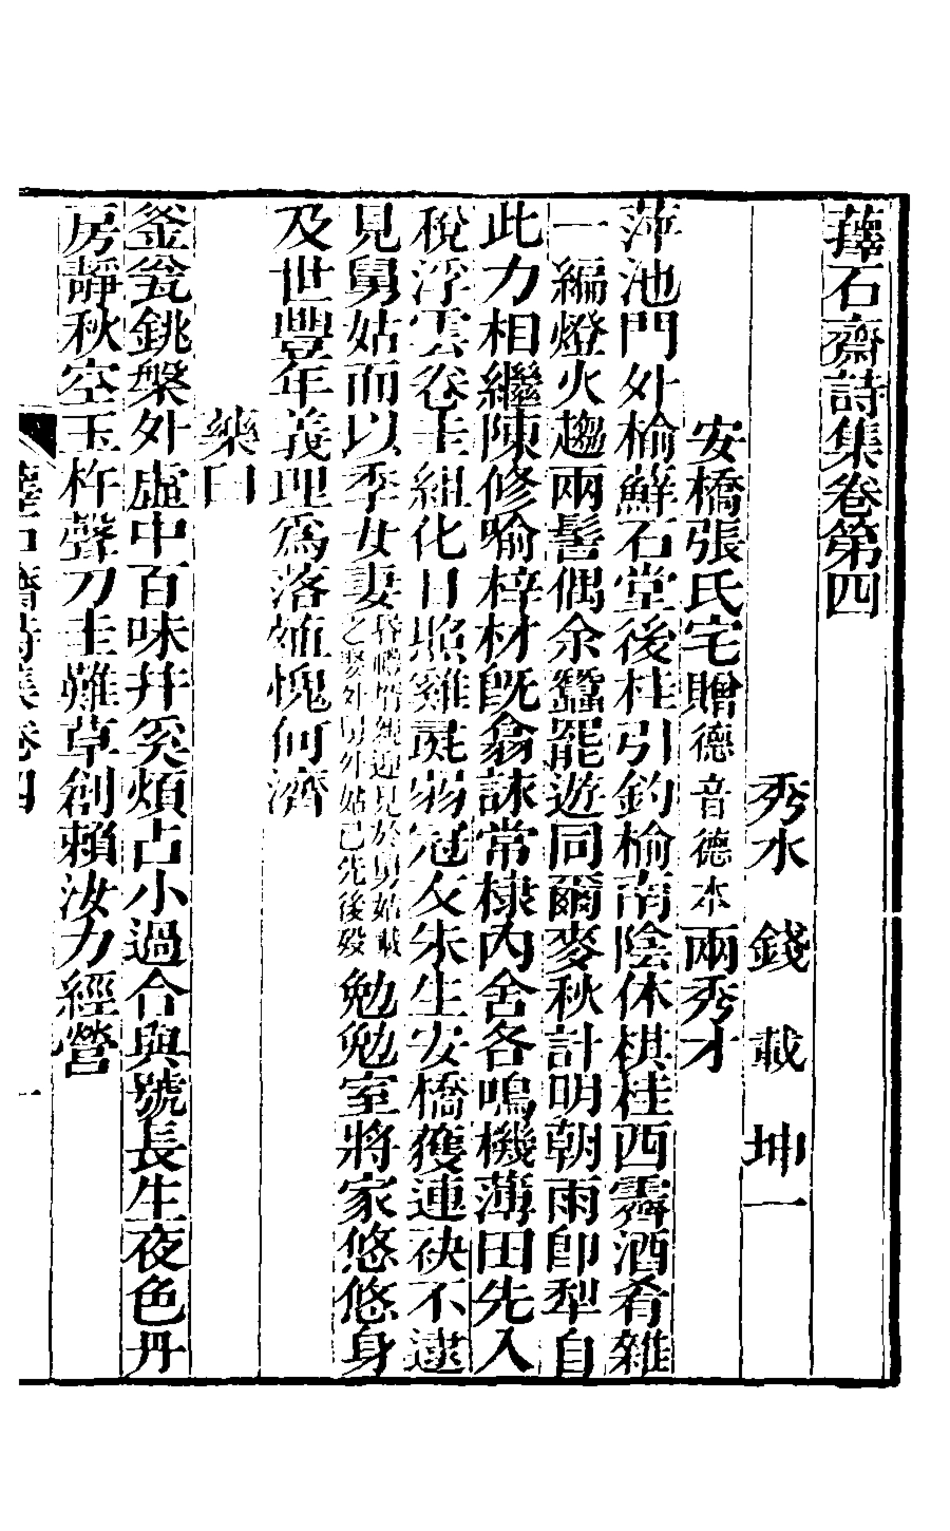 蘀石齋詩集卷第四
秀水 錢載 坤一
安橋張氏宅贈德音德本兩秀才
萍池門外榆蘚石堂後桂引釣榆南陰休棋桂西霽酒肴雜
一編燈火趨兩髻偶余蠶罷遊同爾麥秋計明朝雨卽犁自
此力相繼陳修喻梓材旣翕詠常棣內舍各鳴機薄田先入
稅浮雲卷圭組化日照雞彘弱冠友朱生安橋獲連袂不逮
見舅姑而以季女妻昏禮壻親迎見於舅姑載之娶外舅外姑已先後歿勉勉室將家悠悠身
及世豐年義理爲落殖愧何濟
藥臼
釜瓮銚槃外虛中百味幷奚煩占小過合與號長生夜色丹
房靜秋空玉杵聲刀圭難草創賴汝力經營
蘀石齋詩集卷四
一